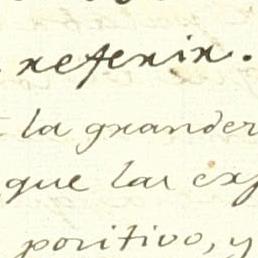 referir.
la grander
que las exp
positivo, y